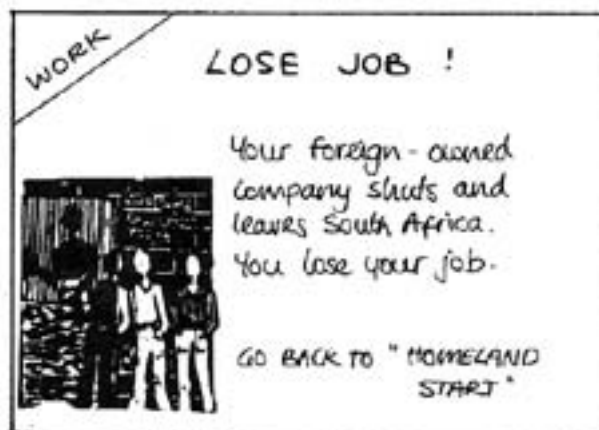 WORK
LOSE JOB !
Your foreign-owned
company shuts and
leaves South Africa.
You lose your job.
GO BACK TO "HOMELAND
START"